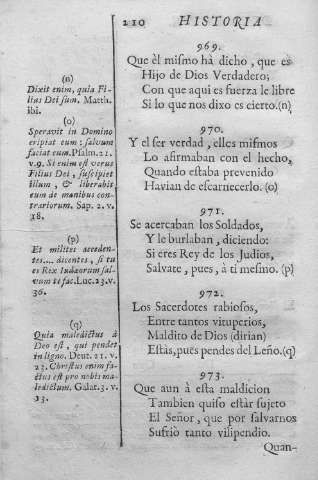 210 HISTORIA
(n)
Dixit enim, quia Fi-
lius Dei sum. Matth.
ibi.
(o)
Speravit in Domino
eripiat eum: salvum
faciat eum. Psalm. 21.
v. 9. Si enim est verus
Filius Dei, suscipiet
illum, & liberabit
eum de manibus con-
trariorum. Sap. 2. v.
18.
(p)
Et milites acceden-
tes.... dicentes, si tu
es Rex Iudæorum sal-
vum te fac. Luc. 23. v.
36.
(q)
Quia maledictus à
Deo est, qui pendet
in ligno. Deut. 21. v.
23. Christus enim fa-
ctus est pro nobis ma-
ledictum. Galat. 3. v.
13.
969.
Que èl mismo hà dicho, que es
Hijo de Dios Verdadero;
Con que aqui es fuerza le libre
Si lo que nos dixo es cierto. (n)
970.
Y el ser verdad, elles mismos
Lo afirmaban con el hecho,
Quando estaba prevenido
Havian de escarnecerlo. (o)
971.
Se acercaban los Soldados,
Y le burlaban, diciendo:
Si eres Rey de los Judios,
Salvate, pues, à ti mesmo. (p)
972.
Los Sacerdotes rabiosos,
Entre tantos vituperios,
Maldito de Dios (dirian)
Estàs, pues pendes del Leño. (q)
973.
Que aun à esta maldicion
Tambien quiso estàr sujeto
El Señor, que por salvarnos
Sufriò tanto vilipendio.
Quan-